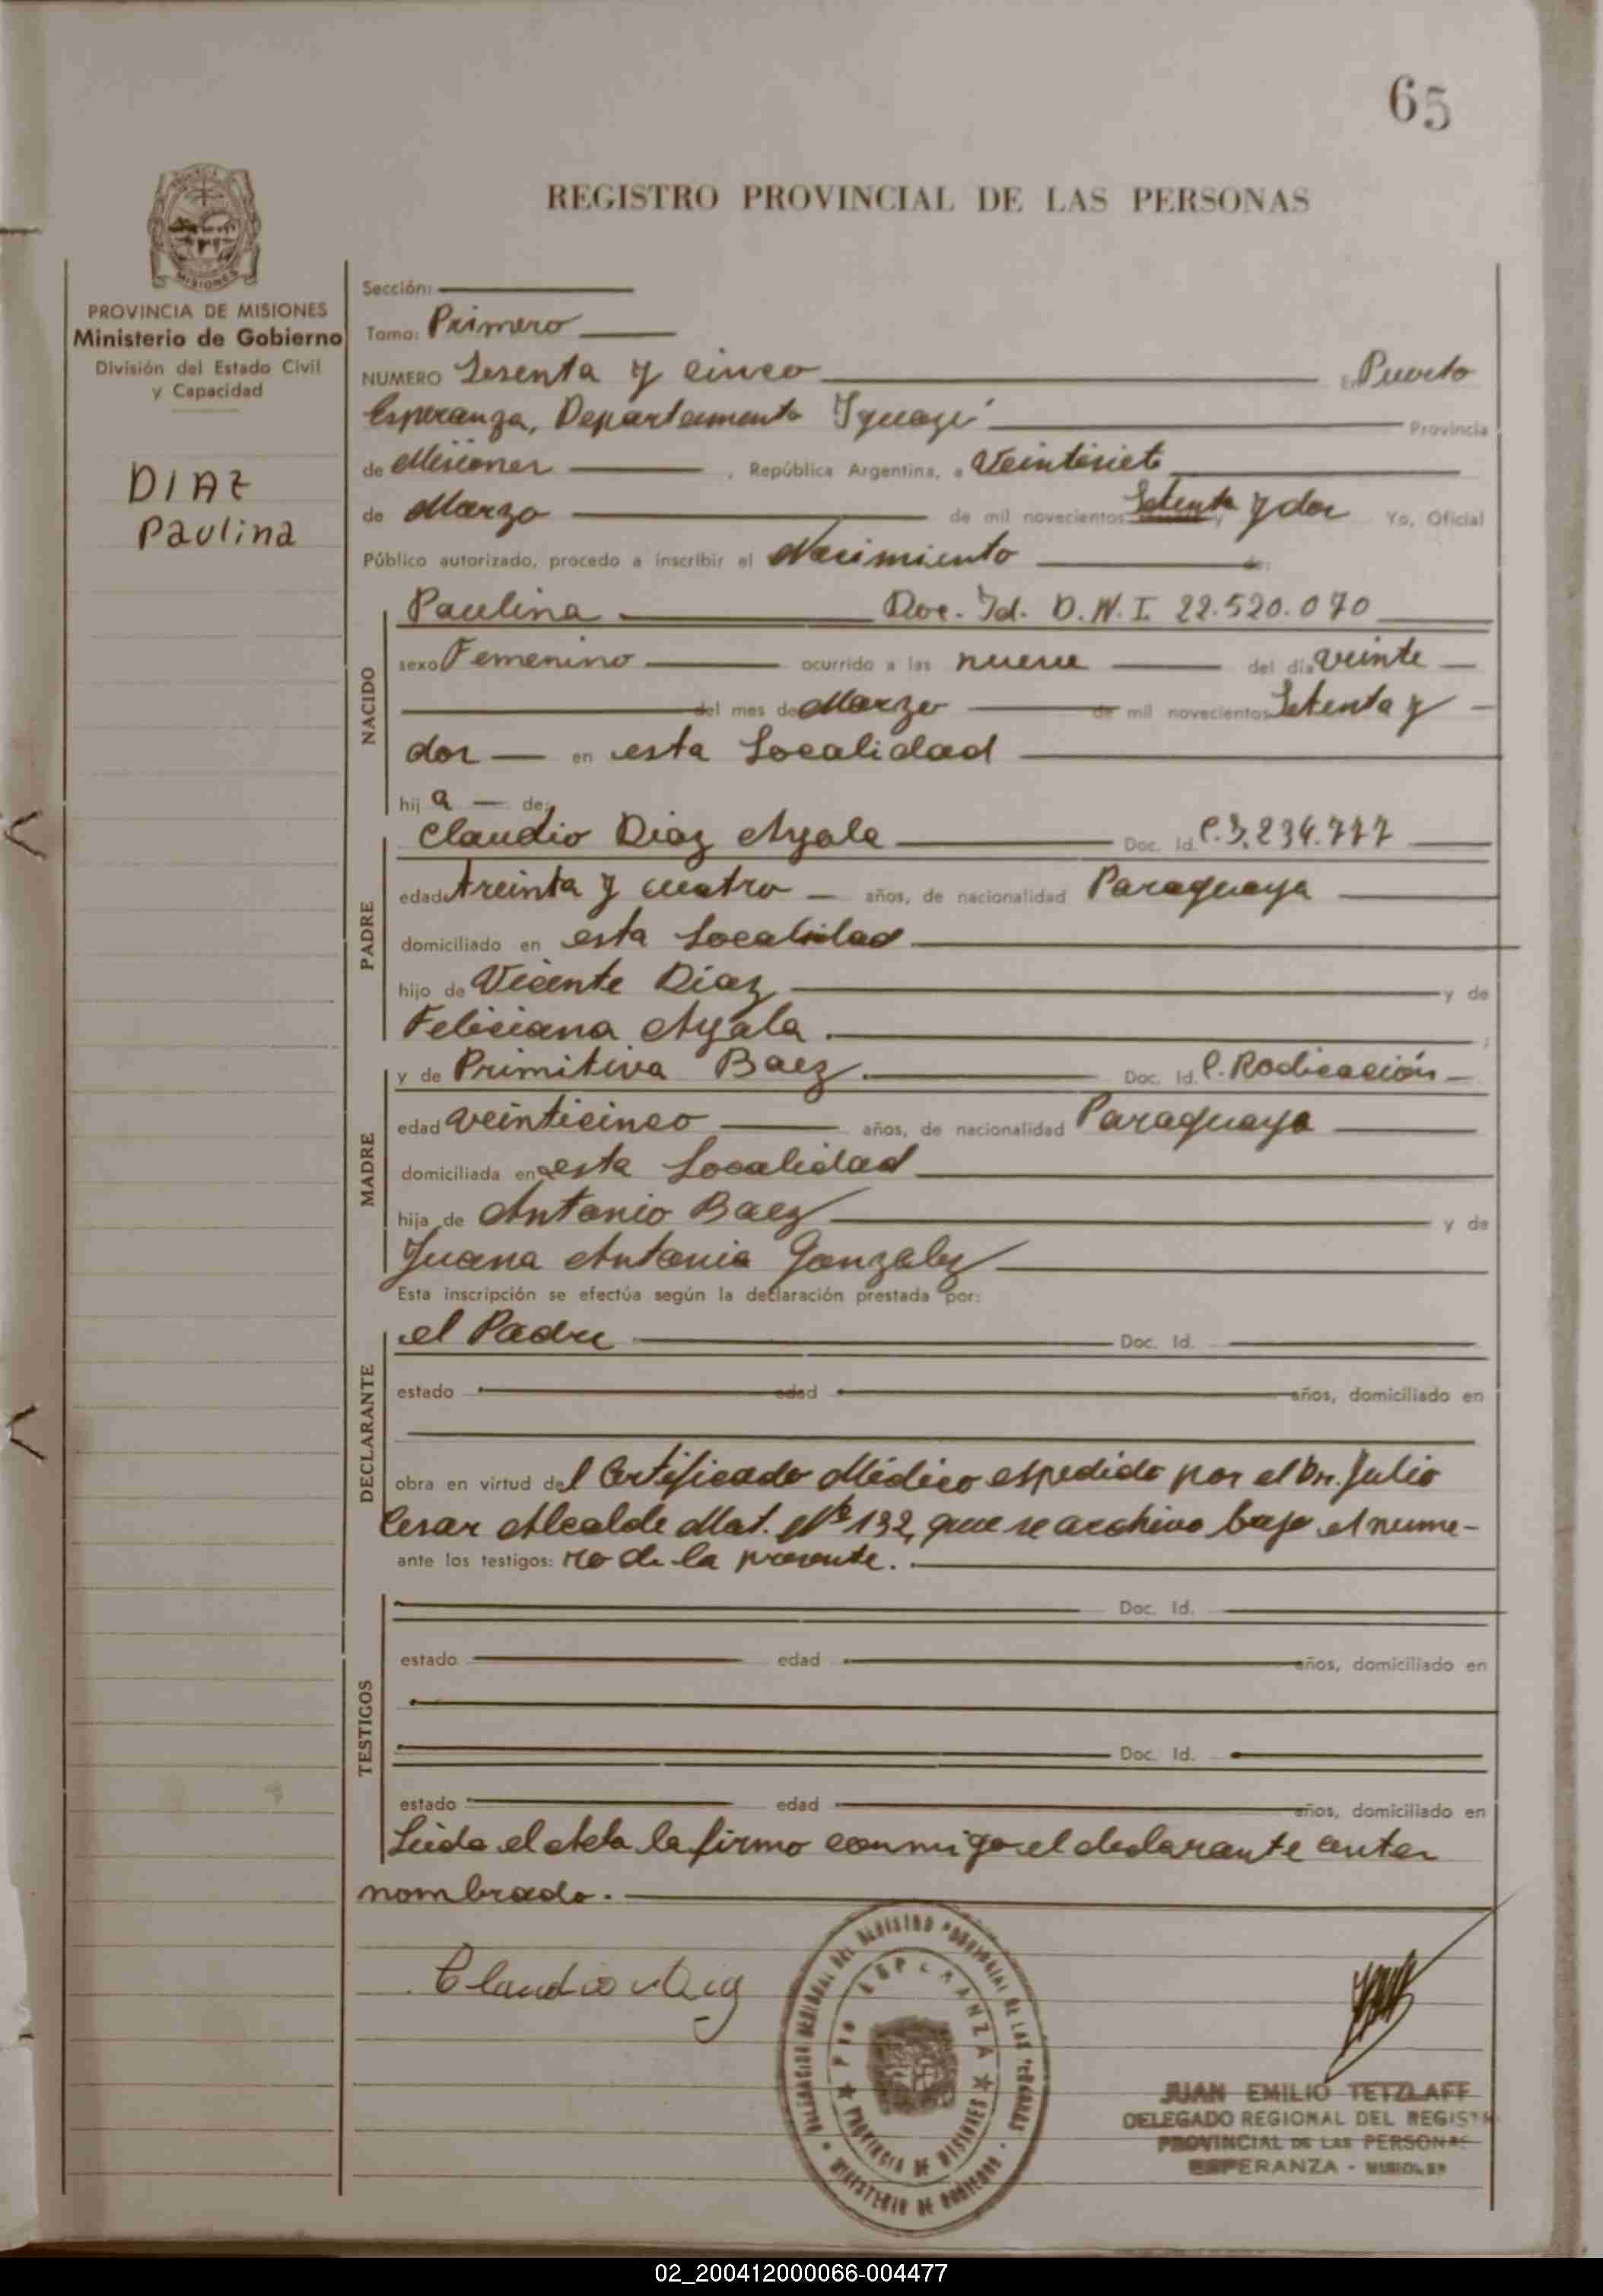 65
REGISTRO PROVINCIAL DE LAS PERSONAS
MISIONES
PROVINCIA DE MISIONES
Ministerio de Gobierno
División del Estado Civil
y Capacidad
DIAZ
Paulina
Sección:
Tomo: Primero
NUMERO Sesenta y cinco En Puerto
Esperanza, Departamento Iguazú Provincia
de Misiones , República Argentina, a Veintisiete
de Marzo de mil novecientos Setenta y dos Yo, Oficial
Público autorizado, procedo a inscribir el Nacimiento de:
NACIDO
Paulina Doc. Id. D.N.I. 22.520.070
sexo Femenino ocurrido a las nueve del día veinte
del mes de Marzo de mil novecientos Setenta y
dos en esta Localidad
hij a de:
PADRE
Claudio Diaz Ayala Doc. Id. C.3.234.777
edad treinta y cuatro años, de nacionalidad Paraguaya
domiciliado en esta Localidad
hijo de Vicente Diaz y de
Feliciana Ayala. ;
MADRE
y de Primitiva Baez Doc. Id. C. Radicación
edad veinticinco años, de nacionalidad Paraguaya
domiciliada en esta Localidad
hija de Antonio Baez y de
Juana Antonia Gonzalez
Esta inscripción se efectúa según la declaración prestada por:
DECLARANTE
el Padre Doc. Id.
estado edad años, domiciliado en
obra en virtud del Certificado Médico espedido por el Dr. Julio
Cesar Alcalde Mat. Nº 132, que se archiva bajo el nume-
ante los testigos: ro de la presente.
TESTIGOS
Doc. Id.
estado edad años, domiciliado en
Doc. Id.
estado edad años, domiciliado en
Leida el Acta la firmo conmigo el declarante antes
nombrado.
Claudio Diaz
DELEGACION REGIONAL DEL REGISTRO PROVINCIAL DE LAS PERSONAS
MINISTERIO DE GOBIERNO
PTO ESPERANZA
PROVINCIA DE MISIONES
JUAN EMILIO TETZLAFF
DELEGADO REGIONAL DEL REGISTR
PROVINCIAL DE LAS PERSONAS
ESPERANZA - MISIONES
02_200412000066-004477